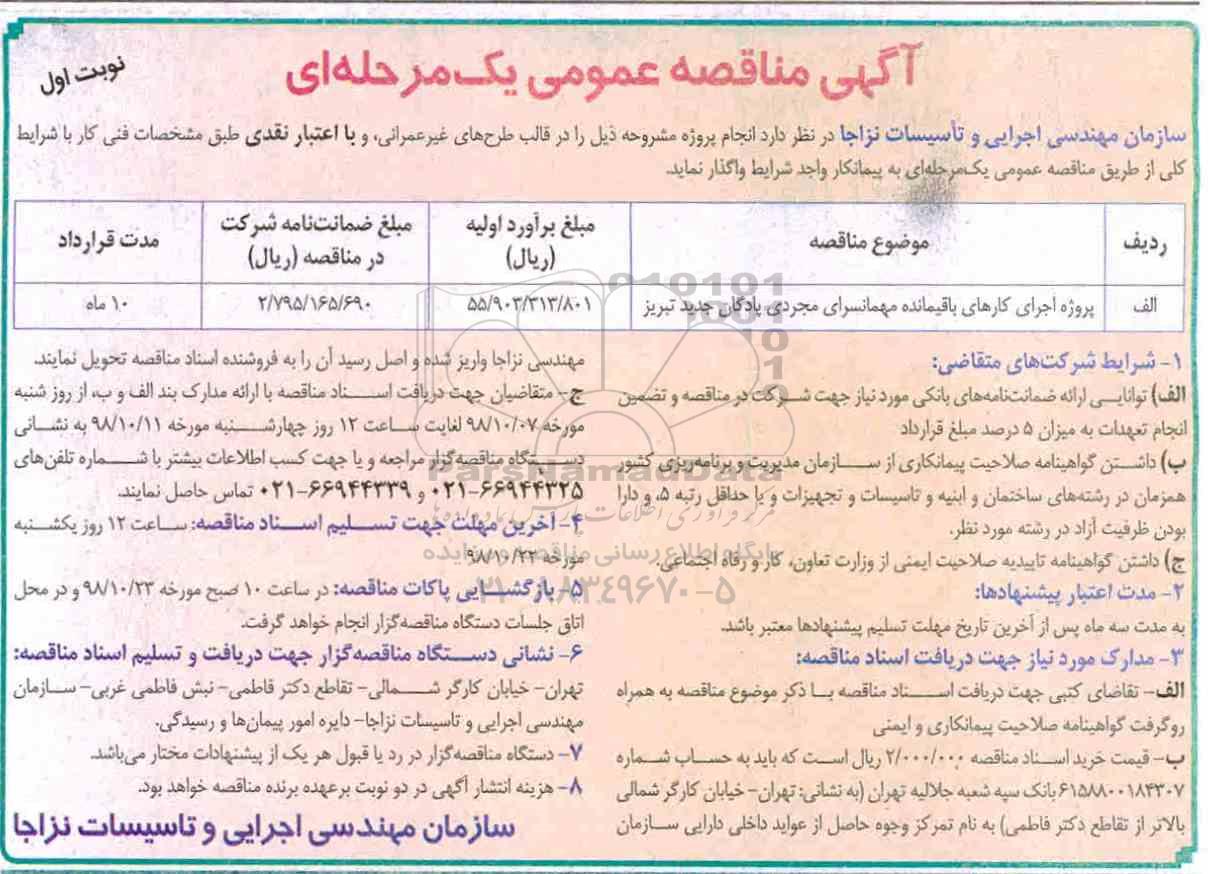 آگهی مناقصه عمومی یک‌مرحله‌ای
نوبت اول
سازمان مهندسی اجرایی و تأسیسات نزاجا در نظر دارد انجام پروژه مشروحه ذیل را در قالب طرح‌های غیرعمرانی، و با اعتبار نقدی طبق مشخصات فنی کار با شرایط
کلی از طریق مناقصه عمومی یک‌مرحله‌ای به پیمانکار واجد شرایط واگذار نماید.
ردیف
موضوع مناقصه
مبلغ برآورد اولیه
(ریال)
مبلغ ضمانت‌نامه شرکت
در مناقصه (ریال)
مدت قرارداد
الف
پروژه اجرای کارهای باقیمانده مهمانسرای مجردی پادگان جدید تبریز
۵۵/۹۰۳/۳۱۳/۸۰۱
۲/۷۹۵/۱۶۵/۶۹۰
۱۰ ماه
۱- شرایط شرکت‌های متقاضی:
الف) توانایی ارائه ضمانت‌نامه‌های بانکی مورد نیاز جهت شرکت در مناقصه و تضمین
انجام تعهدات به میزان ۵ درصد مبلغ قرارداد
ب) داشتن گواهینامه صلاحیت پیمانکاری از سازمان مدیریت و برنامه‌ریزی کشور
همزمان در رشته‌های ساختمان و ابنیه و تاسیسات و تجهیزات و با حداقل رتبه ۵، و دارا
بودن ظرفیت آزاد در رشته مورد نظر.
ج) داشتن گواهینامه تاییدیه صلاحیت ایمنی از وزارت تعاون، کار و رفاه اجتماعی.
۲- مدت اعتبار پیشنهادها:
به مدت سه ماه پس از آخرین تاریخ مهلت تسلیم پیشنهادها معتبر باشد.
۳- مدارک مورد نیاز جهت دریافت اسناد مناقصه:
الف- تقاضای کتبی جهت دریافت اسناد مناقصه با ذکر موضوع مناقصه به همراه
روگرفت گواهینامه صلاحیت پیمانکاری و ایمنی
ب- قیمت خرید اسناد مناقصه ۲/۰۰۰/۰۰۰ ریال است که باید به حساب شماره
۶۱۵۸۸۰۰۱۸۴۳۰۷ بانک سپه شعبه جلالیه تهران (به نشانی: تهران- خیابان کارگر شمالی
بالاتر از تقاطع دکتر فاطمی) به نام تمرکز وجوه حاصل از عواید داخلی دارایی سازمان
مهندسی نزاجا واریز شده و اصل رسید آن را به فروشنده اسناد مناقصه تحویل نمایند.
ج- متقاضیان جهت دریافت اسناد مناقصه با ارائه مدارک بند الف و ب، از روز شنبه
مورخه ۹۸/۱۰/۰۷ لغایت ساعت ۱۲ روز چهارشنبه مورخه ۹۸/۱۰/۱۱ به نشانی
دستگاه مناقصه‌گزار مراجعه و یا جهت کسب اطلاعات بیشتر با شماره تلفن‌های
۰۲۱-۶۶۹۴۴۳۲۵ و ۰۲۱-۶۶۹۴۴۳۳۹ تماس حاصل نمایند.
۴- آخرین مهلت جهت تسلیم اسناد مناقصه: ساعت ۱۲ روز یکشنبه
مورخه ۹۸/۱۰/۲۲
۵- بازگشایی پاکات مناقصه: در ساعت ۱۰ صبح مورخه ۹۸/۱۰/۲۳ و در محل
اتاق جلسات دستگاه مناقصه‌گزار انجام خواهد گرفت.
۶- نشانی دستگاه مناقصه‌گزار جهت دریافت و تسلیم اسناد مناقصه:
تهران- خیابان کارگر شمالی- تقاطع دکتر فاطمی- نبش فاطمی غربی- سازمان
مهندسی اجرایی و تاسیسات نزاجا- دایره امور پیمان‌ها و رسیدگی.
۷- دستگاه مناقصه‌گزار در رد یا قبول هر یک از پیشنهادات مختار می‌باشد.
۸- هزینه انتشار آگهی در دو نوبت برعهده برنده مناقصه خواهد بود.
سازمان مهندسی اجرایی و تاسیسات نزاجا
ParsNamadData
پایگاه اطلاع رسانی مناقصه و مزایده